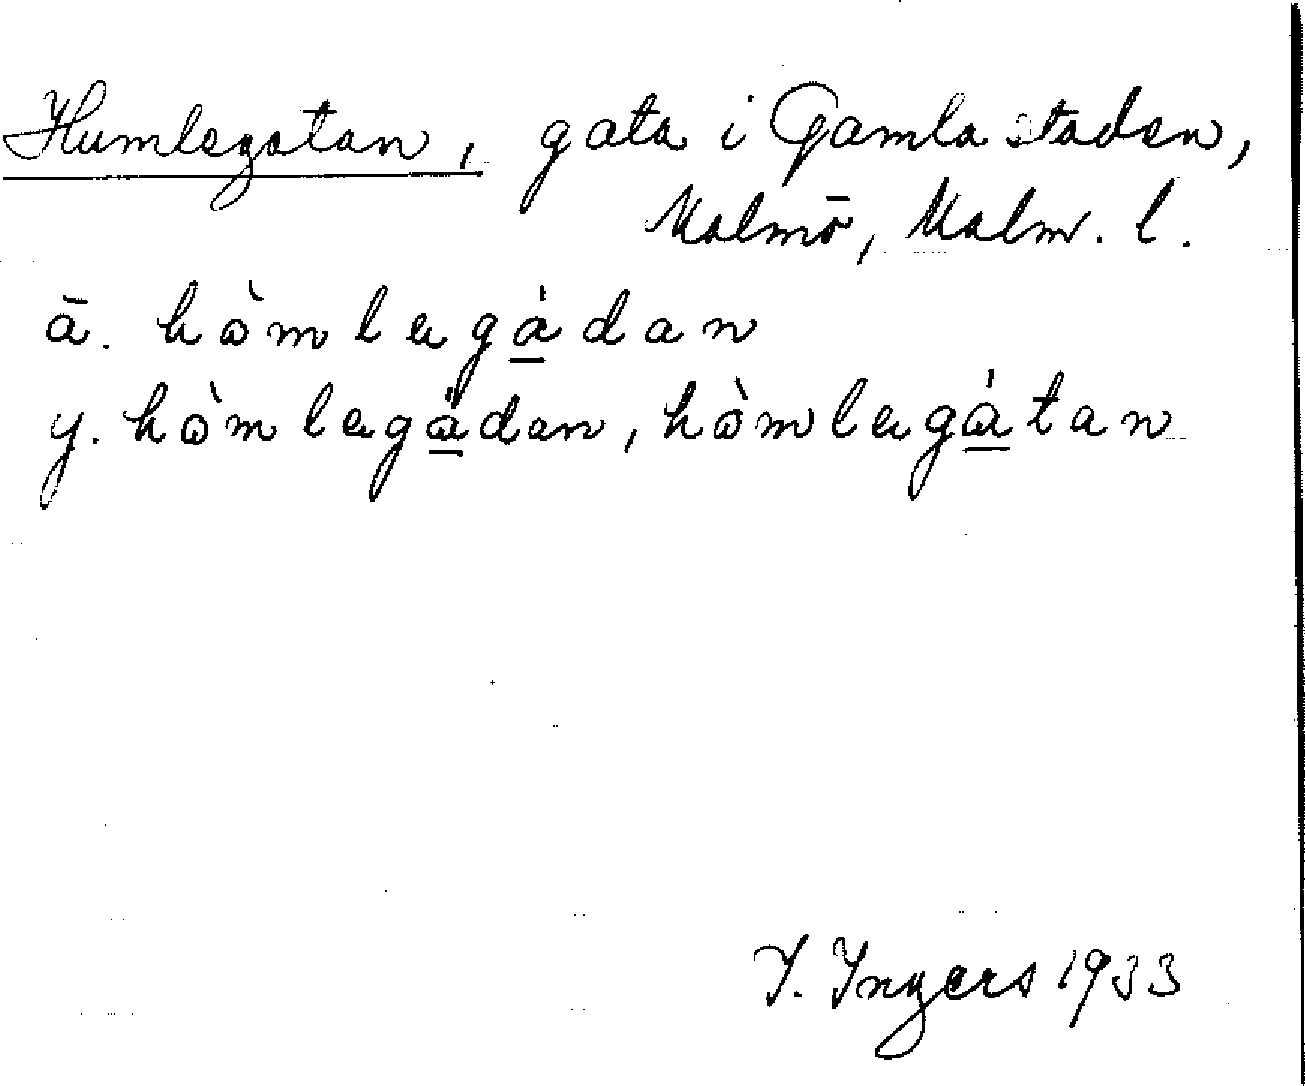 Humlegatan, gata i Gamla staden,
Malmö, Malm. l.
ä. hòmlegádan
y. hòmlegádan, hòmlegátan
I. Ingers 1933